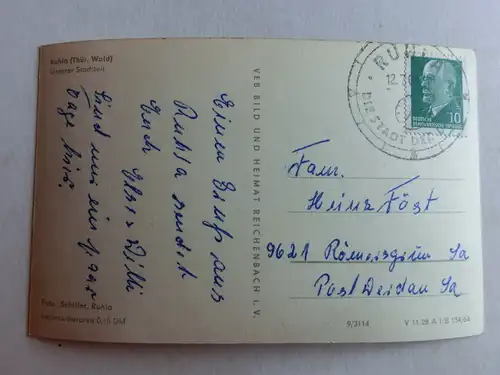 Ruhla (Thür. Wald)
Unterer Stadtteil
Einen Gruß aus
Ruhla sendet
Euch Elsi + Willi
Sind nur ein paar
Tage hier.
Foto: Schiller, Ruhla
0,15 DM
VEB BILD UND HEIMAT REICHENBACH i. V.
RUHLA
12.
DIE STADT DER
10
DEUTSCHE
DEMOKRATISCHE REPUBLIK
Fam.
Heinz Föst
9621 Römersgrün Sa
Post Weidau Sa
9/3114
V 11 28 A 1/B 154/64